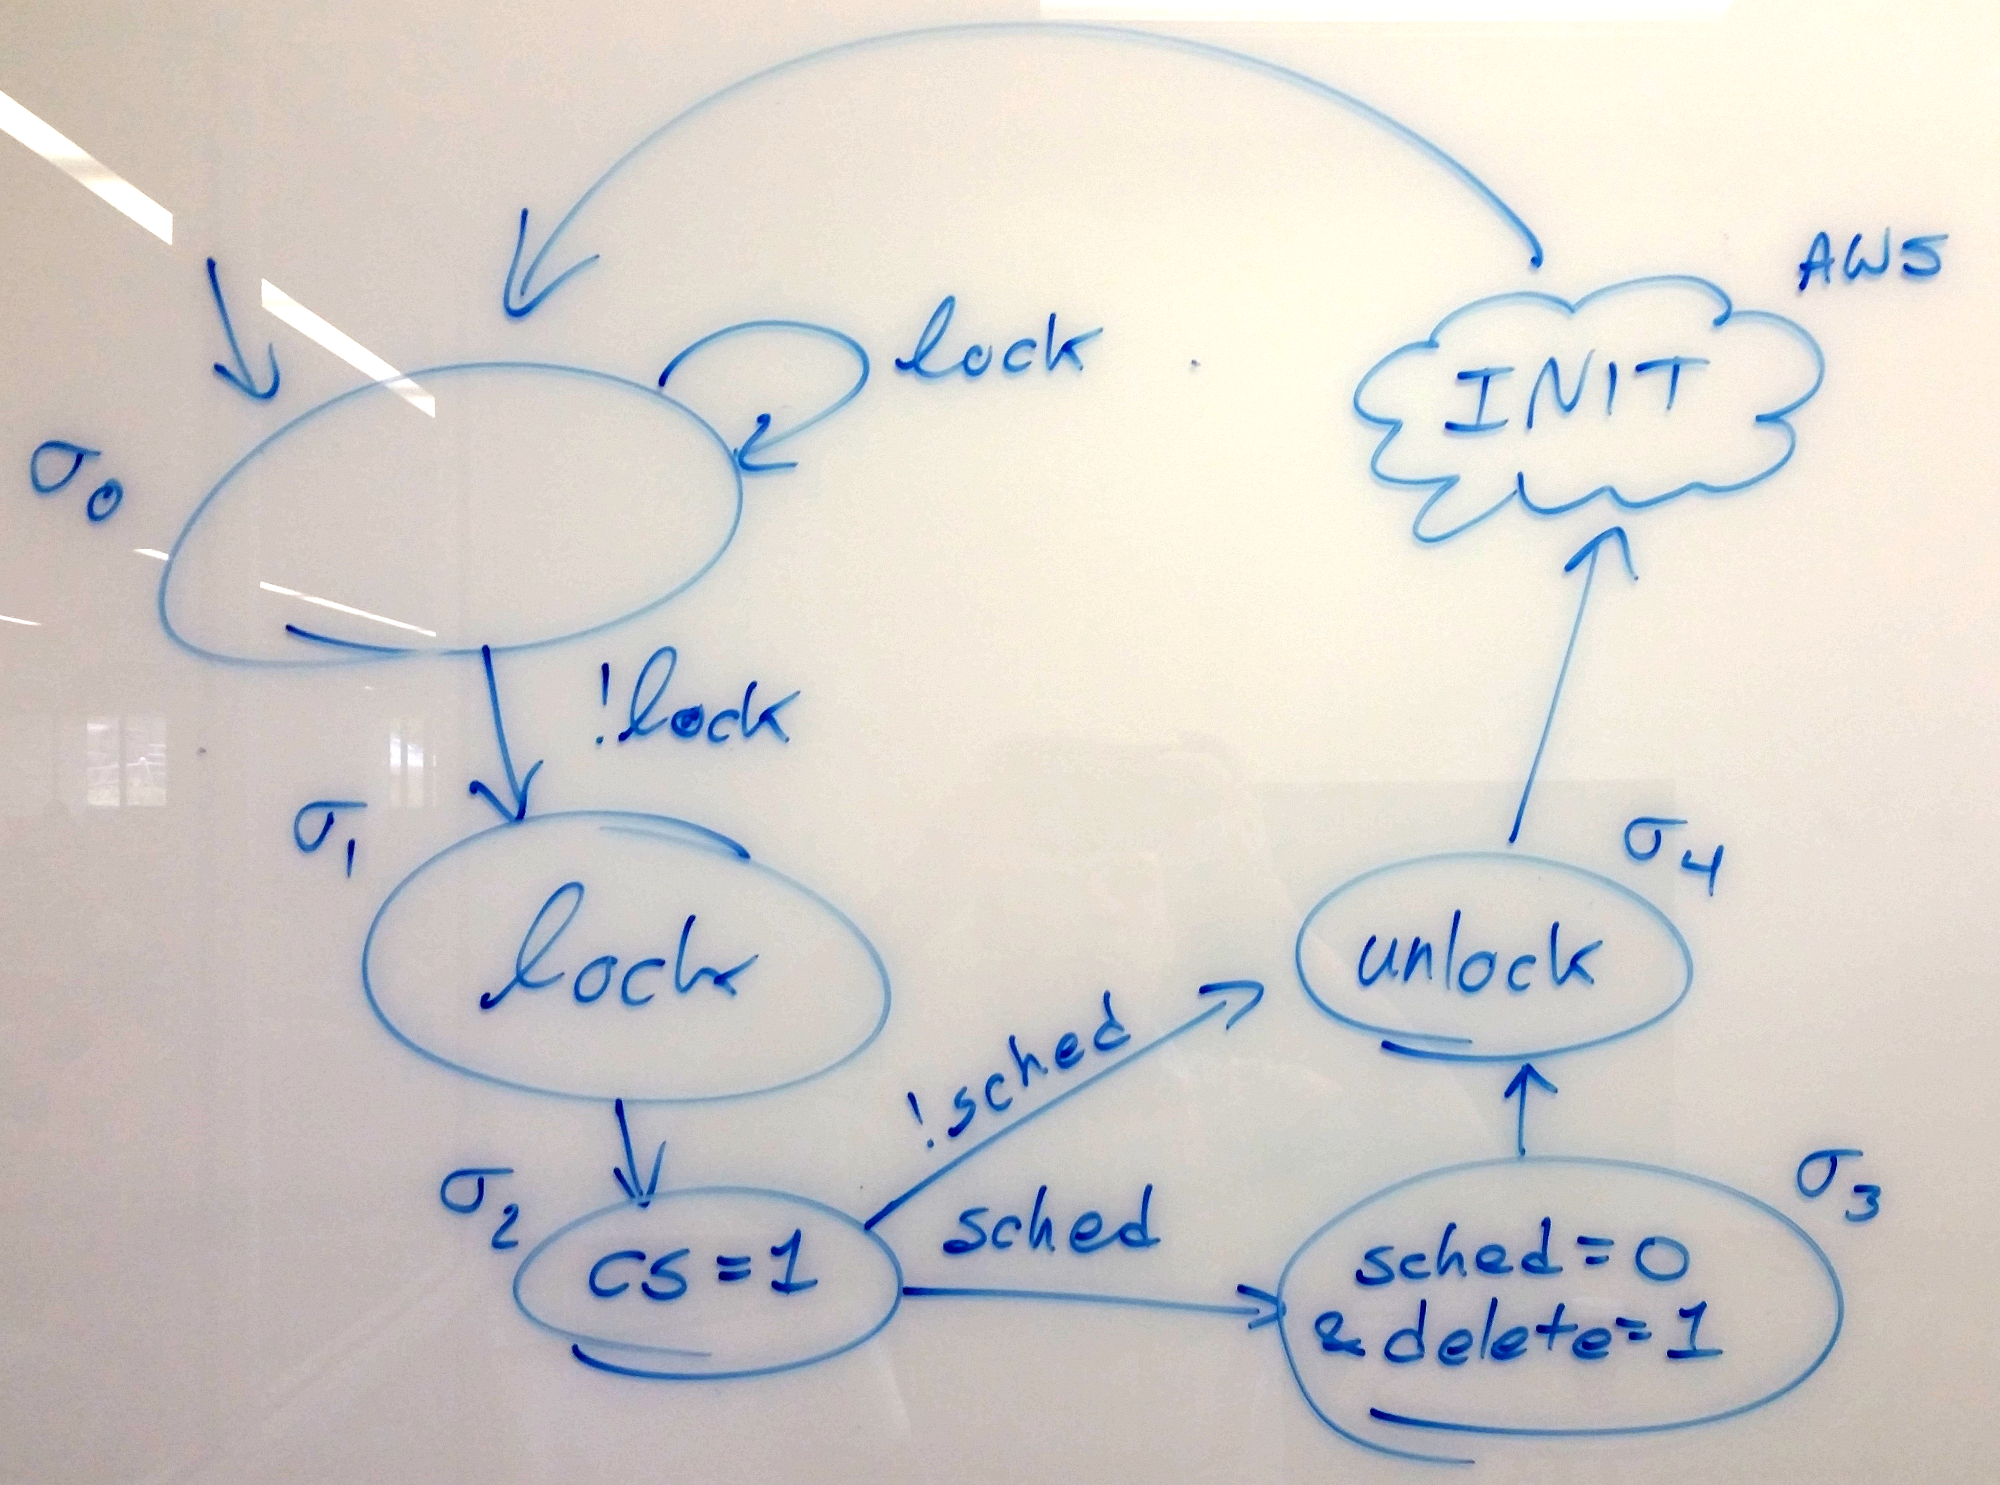 AWS
INIT
lock
σ0
!lock
σ1
lock
σ4
unlock
!sched
σ2
cs=1
sched
σ3
sched=0
& delete=1